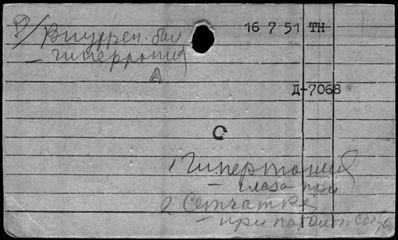 16 7 51 ТН
Р/Внутрен. бол
– гипертония
А
Д-7068
С
1 Гипертония
– глаза при
2 Сетчатка
– при патол. сост.